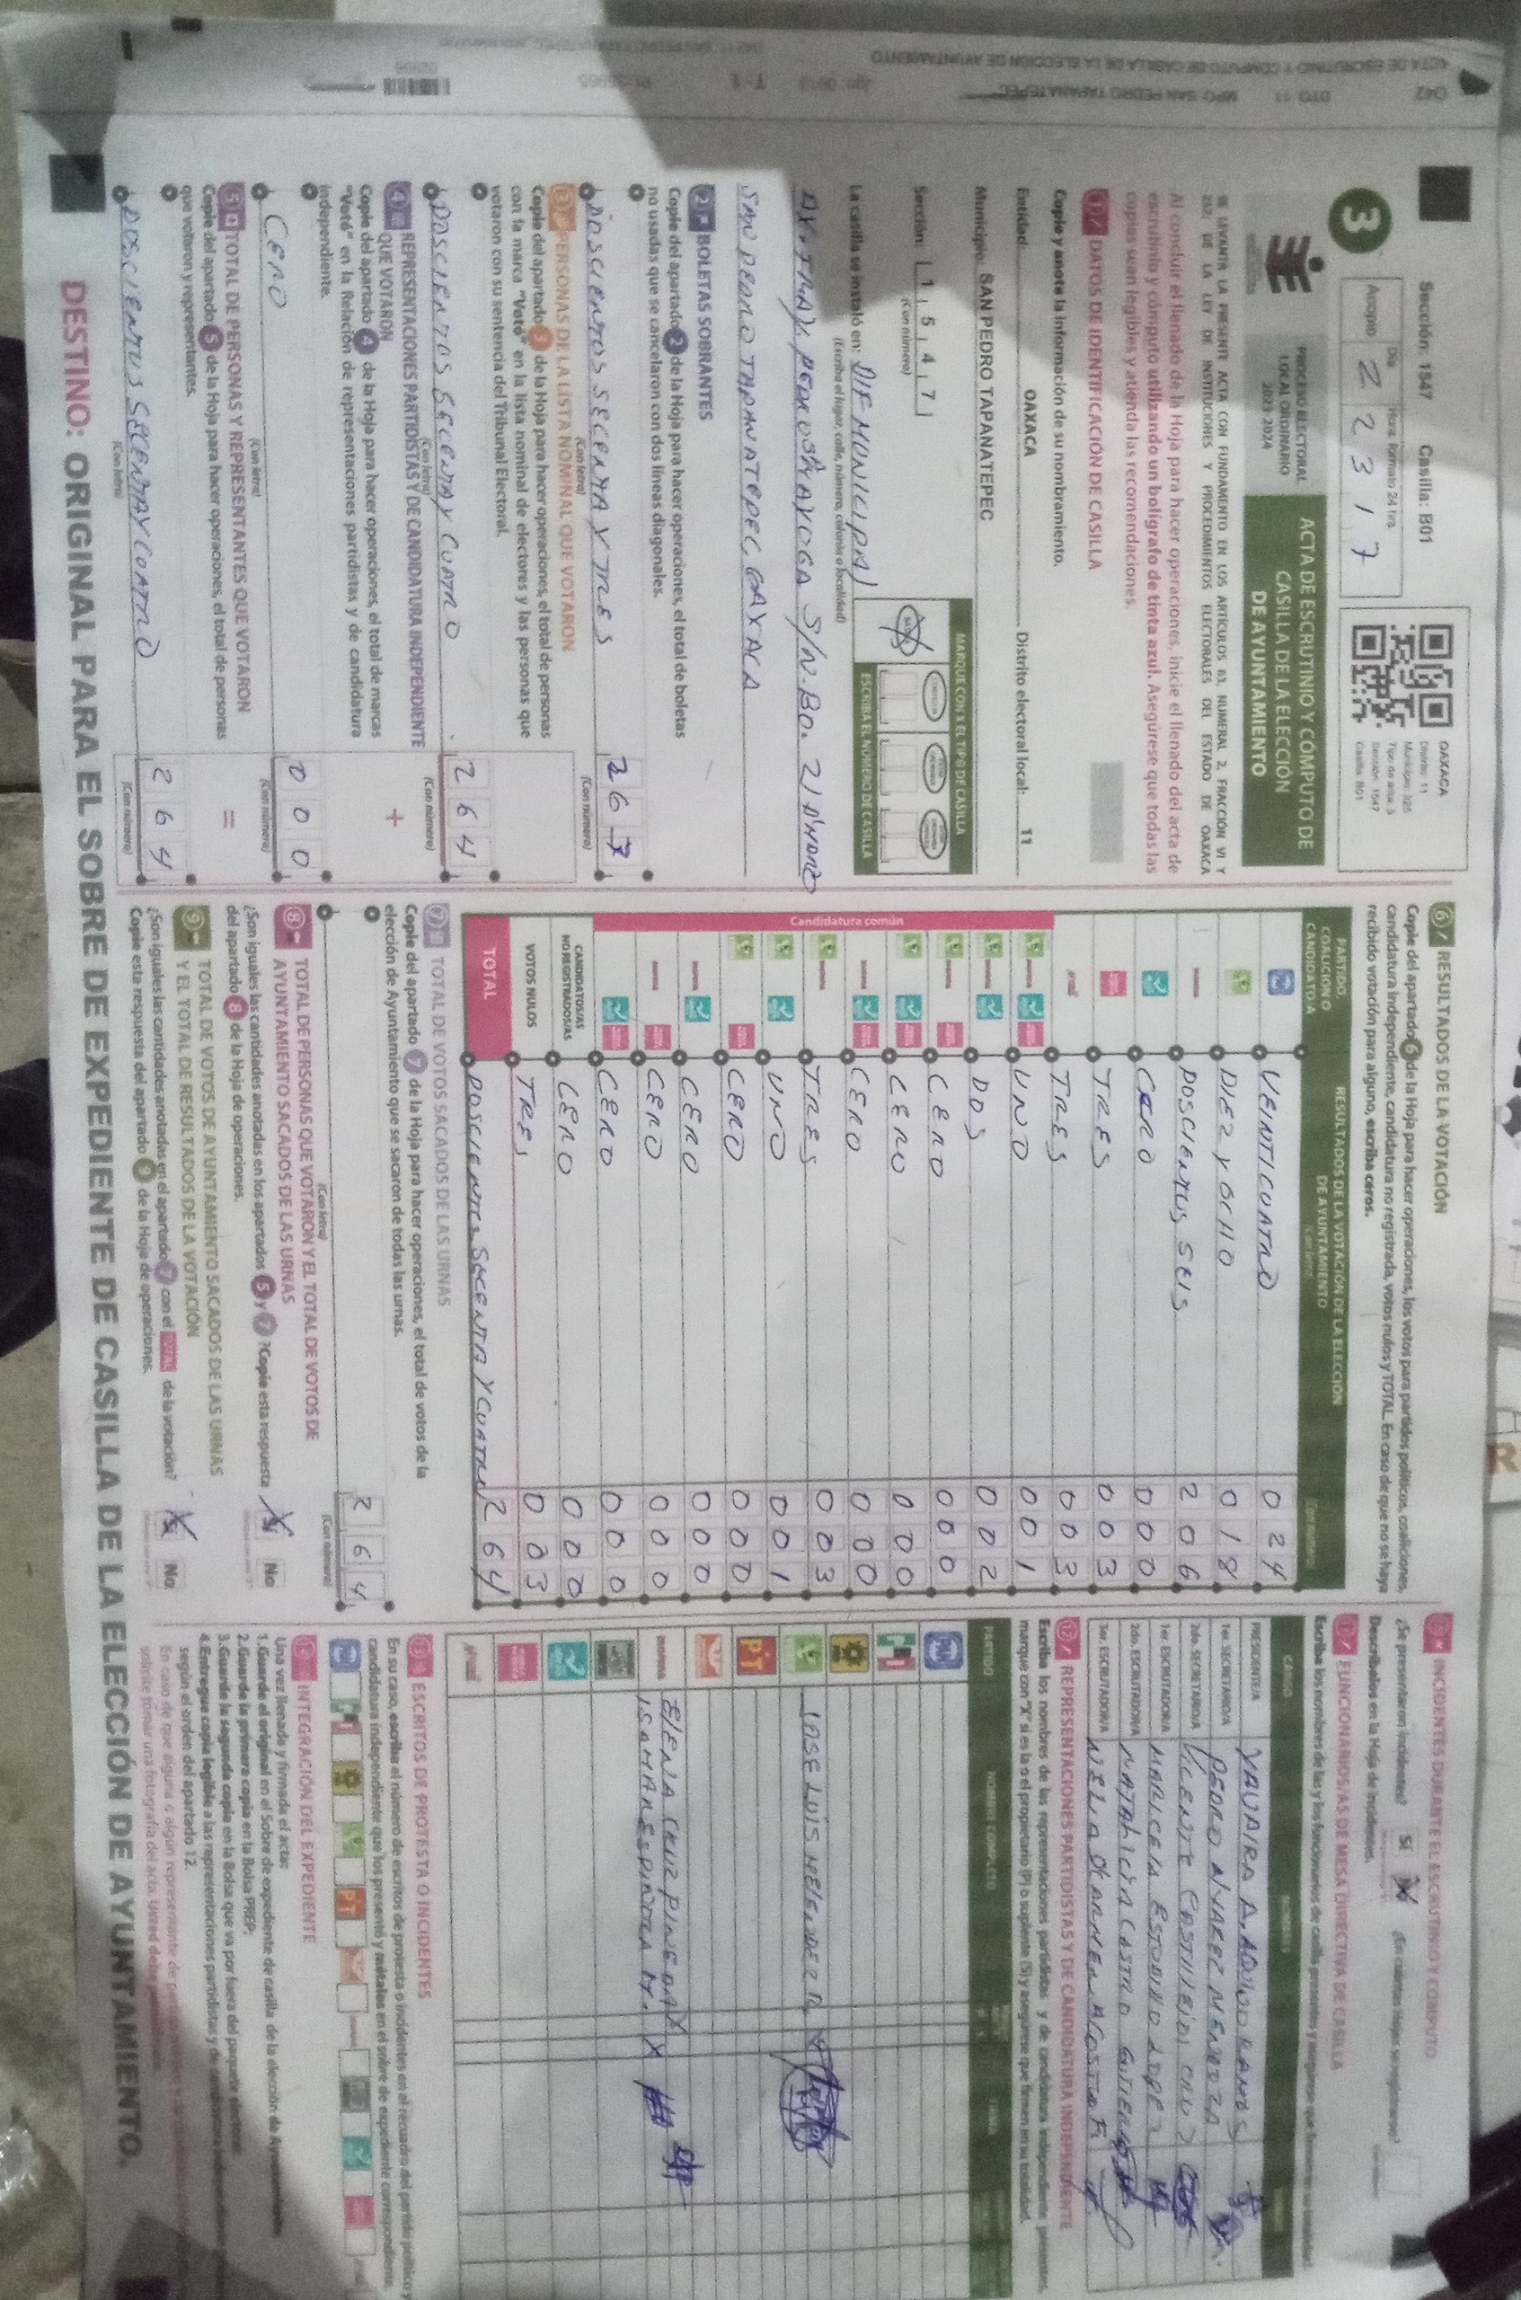 Sección: 1547 Casilla: B01
3
Acopio
Día
Hora: formato 24 hrs.
2 2 3 1 7
OAXACA
Distrito: 11
Municipio: 325
Tipo de acta: 3
Sección: 1547
Casilla: B01
PROCESO ELECTORAL
LOCAL ORDINARIO
2023-2024
ACTA DE ESCRUTINIO Y CÓMPUTO DE
CASILLA DE LA ELECCIÓN
DE AYUNTAMIENTO
SE LEVANTA LA PRESENTE ACTA CON FUNDAMENTO EN LOS ARTÍCULOS 63, NUMERAL 2, FRACCIÓN VI Y
232; DE LA LEY DE INSTITUCIONES Y PROCEDIMIENTOS ELECTORALES DEL ESTADO DE OAXACA
Al concluir el llenado de la Hoja para hacer operaciones, inicie el llenado del acta de
escrutinio y cómputo utilizando un bolígrafo de tinta azul. Asegúrese que todas las
copias sean legibles y atienda las recomendaciones.
1 DATOS DE IDENTIFICACIÓN DE CASILLA
Copie y anote la información de su nombramiento.
Entidad: OAXACA Distrito electoral local: 11
Municipio: SAN PEDRO TAPANATEPEC
Sección: 1 5 4 7
(Con número)
MARQUE CON X EL TIPO DE CASILLA
ESCRIBA EL NÚMERO DE CASILLA
La casilla se instaló en: DIF MUNICIPAL
(Escriba el lugar, calle, número, colonia o localidad)
S/N. BO.
SAN PEDRO TAPANATEPEC, OAXACA
2 BOLETAS SOBRANTES
Copie del apartado 2 de la Hoja para hacer operaciones, el total de boletas
no usadas que se cancelaron con dos líneas diagonales.
DOSCIENTOS SECENTA Y TRES 2 6 3
(Con letra) (Con número)
3 PERSONAS DE LA LISTA NOMINAL QUE VOTARON
Copie del apartado 3 de la Hoja para hacer operaciones, el total de personas
con la marca "Votó" en la lista nominal de electores y las personas que
votaron con su sentencia del Tribunal Electoral.
DOSCIENTOS SECENTAY CUATRO 2 6 4
(Con letra) (Con número)
4 REPRESENTACIONES PARTIDISTAS Y DE CANDIDATURA INDEPENDIENTE
QUE VOTARON +
Copie del apartado 4 de la Hoja para hacer operaciones, el total de marcas
"Votó" en la Relación de representaciones partidistas y de candidatura
independiente.
CERO 0 0 0
(Con letra) (Con número)
5 TOTAL DE PERSONAS Y REPRESENTANTES QUE VOTARON =
Copie del apartado 5 de la Hoja para hacer operaciones, el total de personas
que votaron y representantes.
DOSCIENTOS SECENTAY CUATRO 2 6 4
(Con letra) (Con número)
6 RESULTADOS DE LA VOTACIÓN
Copie del apartado 6 de la Hoja para hacer operaciones, los votos para partidos políticos, coaliciones,
candidatura independiente, candidatura no registrada, votos nulos y TOTAL. En caso de que no se haya
recibido votación para alguno, escriba ceros.
PARTIDO,
COALICIÓN O
CANDIDATO/A
RESULTADOS DE LA VOTACIÓN DE LA ELECCIÓN
DE AYUNTAMIENTO
(Con letra) (Con número)
VEINTICUATRO 0 2 4
DIEZ Y OCHO 0 1 8
DOSCIENTOS SEIS 2 0 6
CERO 0 0 0
TRES 0 0 3
TRES 0 0 3
Candidatura común
UNO 0 0 1
DOS 0 0 2
CERO 0 0 0
CERO 0 0 0
CERO 0 0 0
TRES 0 0 3
UNO 0 0 1
CERO 0 0 0
CERO 0 0 0
CERO 0 0 0
CERO 0 0 0
CANDIDATOS/AS
NO REGISTRADOS/AS CERO 0 0 0
VOTOS NULOS TRES 0 0 3
TOTAL DOSCIENTOS SECENTA Y CUATRO 2 6 4
7 TOTAL DE VOTOS SACADOS DE LAS URNAS
Copie del apartado 7 de la Hoja para hacer operaciones, el total de votos de la
elección de Ayuntamiento que se sacaron de todas las urnas.
2 6 4
(Con letra) (Con número)
8 TOTAL DE PERSONAS QUE VOTARON Y EL TOTAL DE VOTOS DE
AYUNTAMIENTO SACADOS DE LAS URNAS
¿Son iguales las cantidades anotadas en los apartados 5 y 7 ? Copie esta respuesta
del apartado 8 de la Hoja de operaciones.
Sí No
9 TOTAL DE VOTOS DE AYUNTAMIENTO SACADOS DE LAS URNAS
Y EL TOTAL DE RESULTADOS DE LA VOTACIÓN
¿Son iguales las cantidades anotadas en el apartado 7 con el TOTAL de la votación?
Copie esta respuesta del apartado 9 de la Hoja de operaciones.
Sí No
10 INCIDENTES DURANTE EL ESCRUTINIO Y CÓMPUTO
¿Se presentaron incidentes? Sí No ¿En cuántas Hojas se registraron?
Descríbalos en la Hoja de incidentes.
11 FUNCIONARIOS/AS DE MESA DIRECTIVA DE CASILLA
Escriba los nombres de las y los funcionarios de casilla presentes y asegúrese que firmen en su totalidad.
CARGO NOMBRES
PRESIDENTE/A YAUAIRA A. RAMOS
1er. SECRETARIO/A PEDRO ALVAREZ MENDOZA
2do. SECRETARIO/A VICENTE CRUZ
1er. ESCRUTADOR/A MARICELA LOPEZ
2do. ESCRUTADOR/A CASTRO
3er. ESCRUTADOR/A
12 REPRESENTACIONES PARTIDISTAS Y DE CANDIDATURA INDEPENDIENTE
Escriba los nombres de las representaciones partidistas y de candidatura independiente presentes,
marque con "X" si es la o el propietario (P) o suplente (S) y asegúrese que firmen en su totalidad.
PARTIDO NOMBRE COMPLETO
PAN
PRI
JOSE LUIS MELENDEZ
PT
morena ELENA CRUZ PINEDA X
ESPINOZA X
13 ESCRITOS DE PROTESTA O INCIDENTES
En su caso, escriba el número de escritos de protesta o incidentes en el recuadro del partido político y
candidatura independiente que los presentó y métalos en el sobre de expediente correspondiente.
INTEGRACIÓN DEL EXPEDIENTE
Una vez llenada y firmada el acta:
1. Guarde el original en el Sobre de expediente de casilla de la elección de Ayuntamiento
2. Guarde la primera copia en la Bolsa PREP.
3. Guarde la segunda copia en la Bolsa que va por fuera del paquete electoral
4. Entregue copia legible a las representaciones partidistas y de candidatura
según el orden del apartado 12.
DESTINO: ORIGINAL PARA EL SOBRE DE EXPEDIENTE DE CASILLA DE LA ELECCIÓN DE AYUNTAMIENTO.